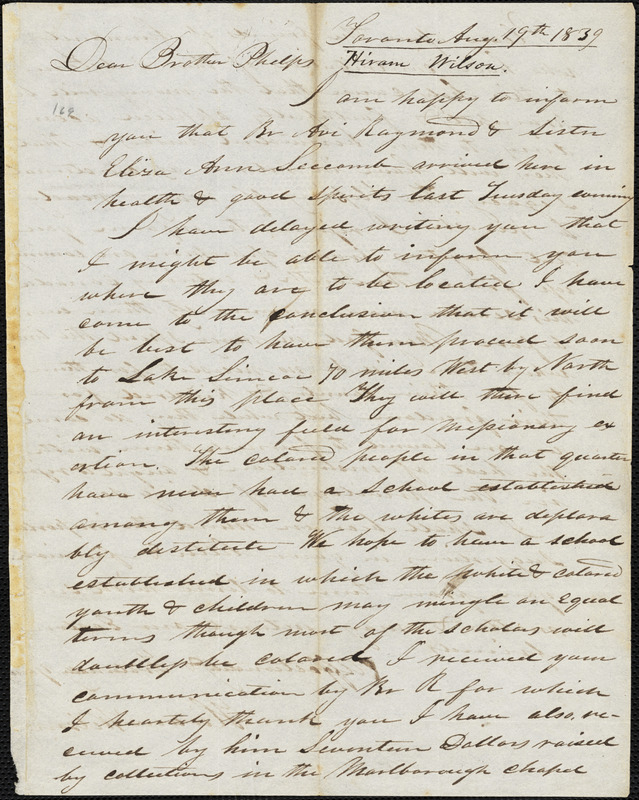 Toronto Aug. 19th 1839
Dear Brother Phelps Hiram Wilson.
I am happy to inform
164
you that Br Avi Raymond & Sister
Eliza Ann Seccomb arrived here in
health & good spirits last Tuesday evening
I have delayed writing you that
I might be able to inform you
where they are to be located I have
come to the conclusion that it will
be best to have them proceed soon
to Lake Simcoe 70 miles West by North
from this place They will there find
an interesting field for missionary ex
ertion. The colored people in that quarter
have never had a school established
among them & the whites are deplora
bly destitute We hope to have a school
established in which the white & colored
youth & children may mingle on equal
terms though most of the scholars will
doubtless be colored I received your
communication by Br R for which
I heartily thank you I have also, re-
ceived by him Seventeen Dollars raised
by collections in the Marlborough chapel